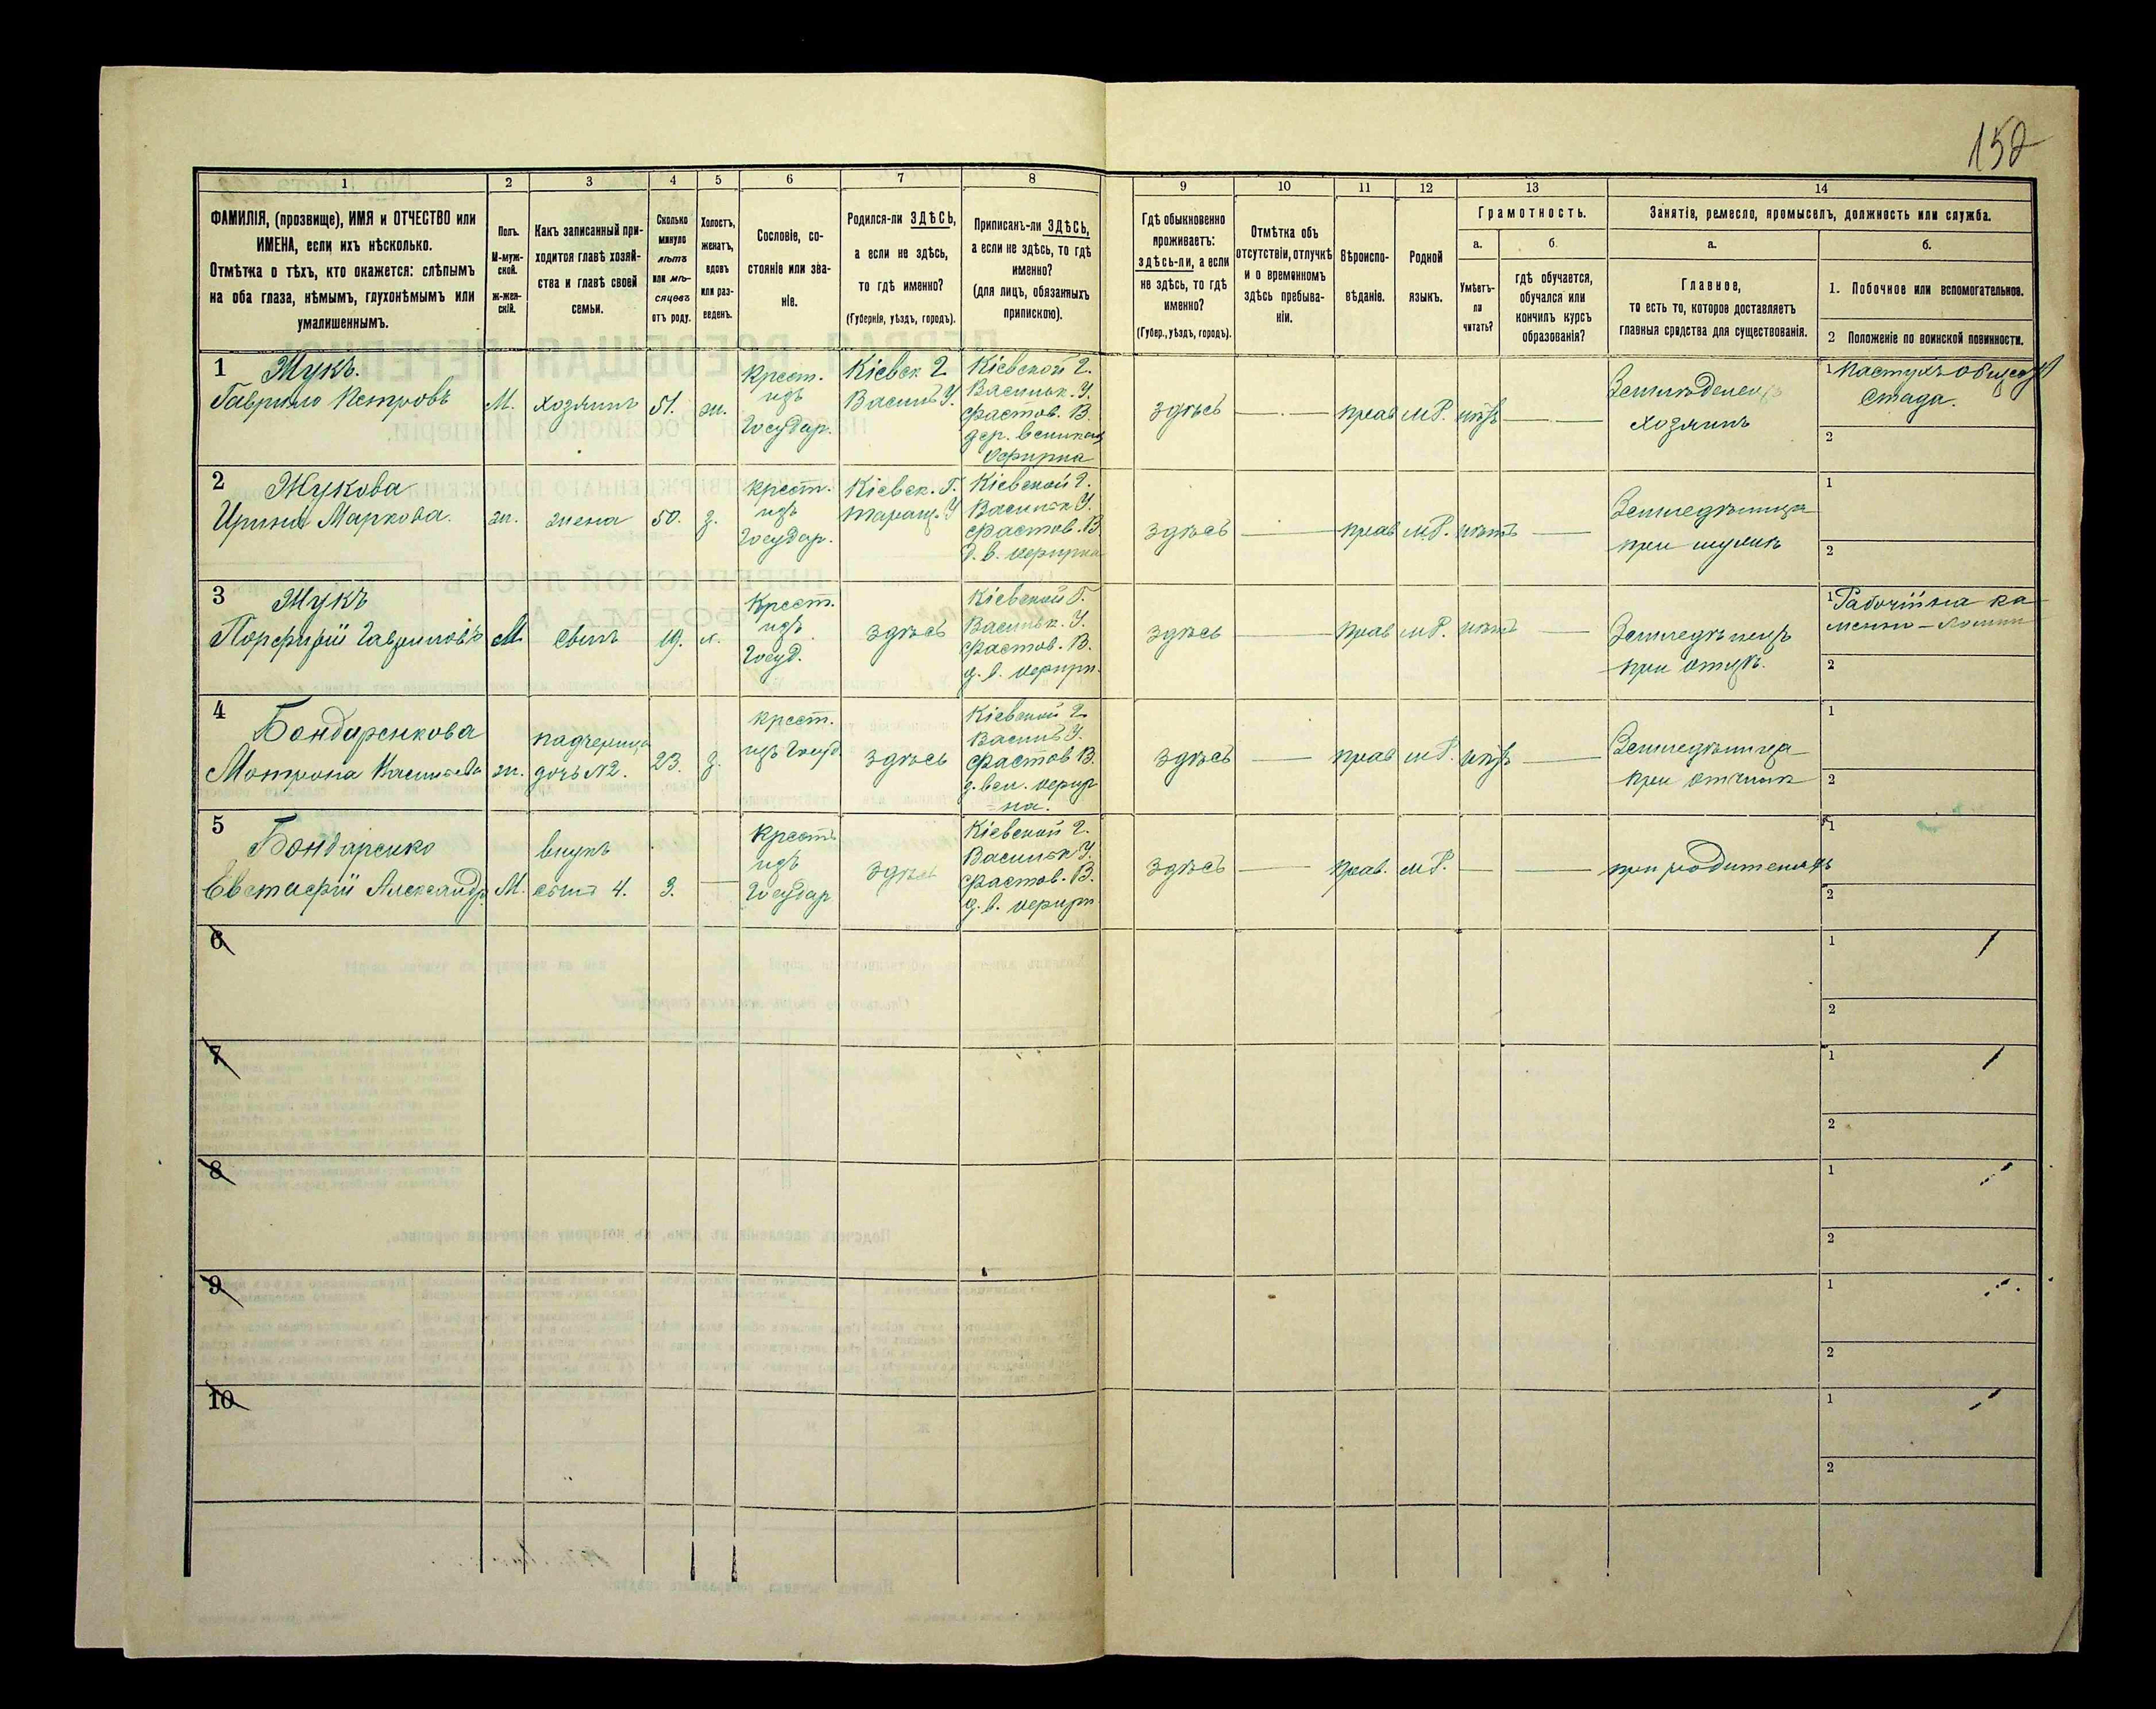 152
1 2 3 4 5 6 7 8 9 10 11 12 13 14
ФАМИЛІЯ, (прозвище), ИМЯ и ОТЧЕСТВО или
ИМЕНА, если ихъ нѣсколько.
Отмѣтка о тѣхъ, кто окажется: слѣпымъ
на оба глаза, нѣмымъ, глухонѣмымъ или
умалишеннымъ.
Полъ.
М-муж-
ской.
Ж-жен-
скій.
Какъ записанный при-
ходится главѣ хозяй-
ства и главѣ своей
семьи.
Сколько
минуло
лѣтъ
или мѣ-
сяцевъ
отъ роду.
Холостъ,
женатъ,
вдовъ
или раз-
веденъ.
Сословіе, со-
стояніе или зва-
ніе.
Родился-ли ЗДѢСЬ,
а если не здѣсь,
то гдѣ именно?
(Губернія, уѣздъ, городъ).
Приписанъ-ли ЗДѢСЬ,
а если не здѣсь, то гдѣ
именно?
(для лицъ, обязанныхъ
припискою).
Гдѣ обыкновенно
проживаетъ:
здѣсь-ли, а если
не здѣсь, то гдѣ
именно?
(Губер., уѣздъ, городъ).
Отмѣтка объ
отсутствіи, отлучкѣ
и о временномъ
здѣсь пребыва-
ніи.
Вѣроиспо-
вѣданіе.
Родной
языкъ.
Грамотность.
а.
Умѣетъ-
ли
читать?
б.
гдѣ обучается,
обучался или
кончилъ курсъ
образованія?
Занятіе, ремесло, промыселъ, должность или служба.
а.
Главное,
то есть то, которое доставляетъ
главныя средства для существованія.
б.
1. Побочное или вспомогательное.
2 Положеніе по воинской повинности.
1 Жукъ.
Гаврило Петровъ
М.
хозяинъ
51.
ж.
Крест.
изъ
Государ.
Кіевск Г.
Василь У.
Кіевской Г.
Васильк. У.
Фастов. В.
дер. Великая
Офирна
здѣсь
прав
м.Р.
нѣтъ
Земледелецъ
хозяинъ
1 Пастухъ общес
стада.
2
2 Жукова
Ирина Маркова.
ж.
жена
50.
з.
Крест.
изъ
Государ.
Кіевск. Г.
Таращ. У
Кіевской Г.
Васильк У.
Фастов. В
д. в. Офирна
здѣсь
прав
м.Р.
нѣтъ
Земледѣлица
при мужѣ
1
2
3 Жукъ
Порфирій Гавриловъ
М.
сынъ
19.
х.
Крест.
изъ
Госуд.
здѣсь
Кіевской Г.
Васильк. У.
Фастов. В.
д. в. Офирн.
здѣсь
прав
м.Р.
нѣтъ
Земледѣлецъ
при отцѣ.
1 Рабочій на ка
менно-ломни
2
4 Бондаренкова
Мотрона Касьянова
ж.
падчерица
дочь №2.
23.
з.
крест.
изъ Госуд
здѣсь
Кіевской Г.
Василь У.
Фастов В.
д. вел. Офир
на.
здѣсь
прав
м.Р.
нѣтъ
Земледѣлица
при отчимѣ
1
2
5 Бондаренко
Евстафій Александр.
М.
внукъ
сынъ 4.
3.
Крест
изъ
Государ
здѣсь
Кіевской Г.
Васильк У.
Фастов. В.
д. в. Офирн
здѣсь
прав.
м.Р.
при родителяхъ
1
2
6
1
2
7
1
2
8
1
2
9
1
2
10
1
2